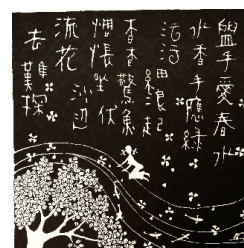 盥手愛春水
水香手應綠
沄沄細浪起
杳杳驚魚伏
惆悵坐沙邊
流花去難掇